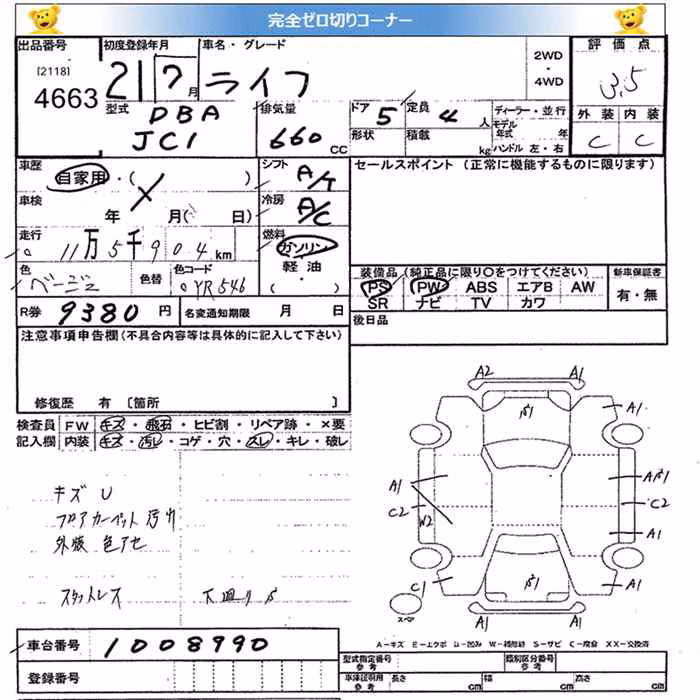 完全ゼロ切りコーナー
出品番号 初度登録年月 車名・グレード 2WD・4WD 評価点
[2118] 4663
21 7月 ライフ 3.5
型式 DBA JC1 排気量 660 CC ドア 5 定員 4人 ディーラー・並行 外装 内装
形状 積載 kg モデル年式 年 ハンドル 左・右 C C
車歴 自家用・( ) シフト A/T セールスポイント (正常に機能するものに限ります)
車検 年 月( 日) 冷房 A/C
走行 11万5千904km 燃料 ガソリン 軽油 ( ・ )
色 ベージュ 色替 色コード YR546 装備品 (純正品に限り〇をつけてください) 新車保証書
PS PW ABS エアB AW 有・無
SR ナビ TV カワ
R券 9380円 名変通知期限 月 日 後日品
注意事項申告欄(不具合内容等は具体的に記入して下さい)
修復歴 有 〔箇所 〕
検査員 FW キズ・飛石・ヒビ割・リペア跡・×要
記入欄 内装 キズ・汚レ・コゲ・穴・スレ・キレ・破レ
キズ U
フロアカーペット汚れ
外装 色アセ
スタットレス 下廻りサ
A2 A1
A1
A1 C2
C2 W2
A1
C1 A1
スペア
A1 A1
A-キズ E-エクボ U-凹み W-補修跡 S-サビ C-腐食 XX-交換済
車台番号 1008990
登録番号
型式指定番号 参考 類別区分番号 参考
車庫証明用 参考 長さ cm 幅 cm 高さ cm